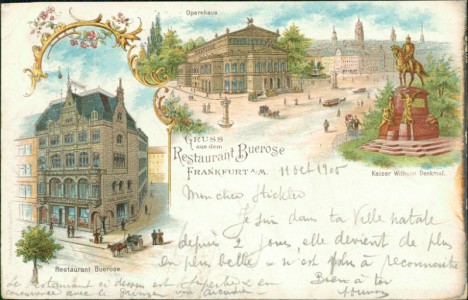 Opernhaus
Gruss
aus dem
Restaurant Buerose
Frankfurt a. M.
Kaiser Wilhelm Denkmal.
Restaurant Buerose
11 Oct 1905
Mon cher
Je suis dans ta Ville natale
depuis 2 jours, elle devient de plus
en plus belle - n'est plus à reconnaitre
Bien à toi
Le restaurant ci dessus est superbe
concurrence avec le